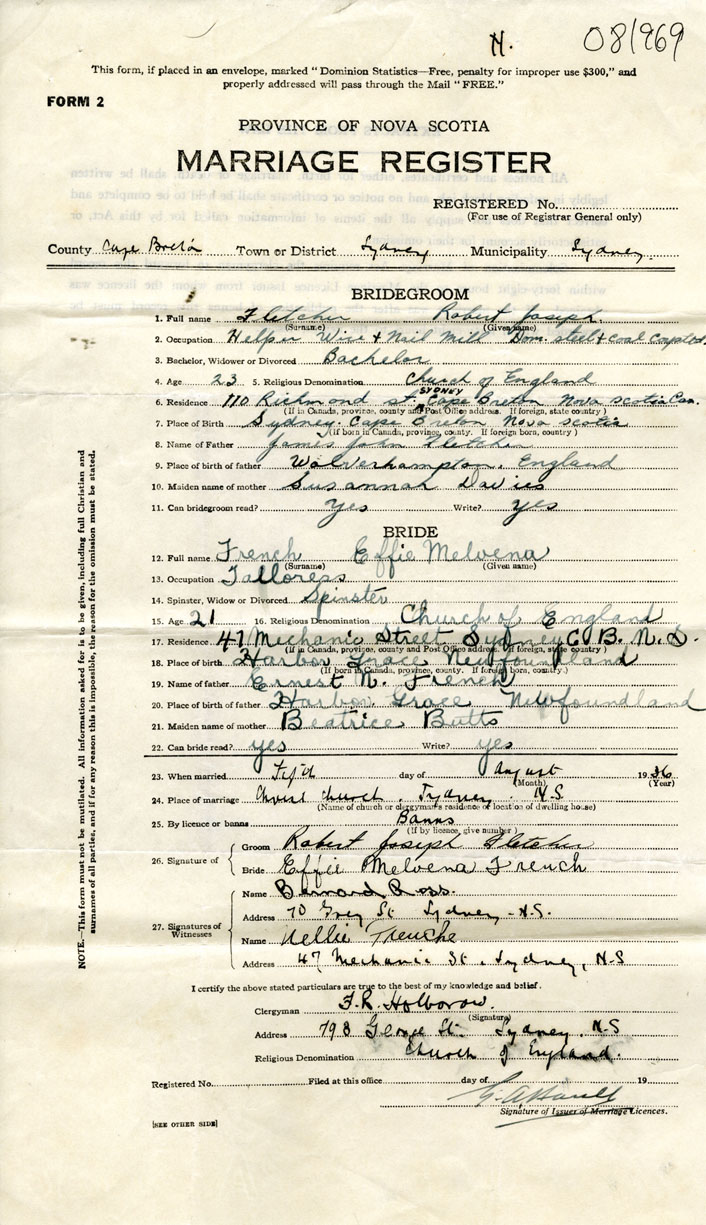 N. 081969
This form, if placed in an envelope, marked "Dominion Statistics—Free, penalty for improper use $300," and
properly addressed will pass through the Mail "FREE."
FORM 2
PROVINCE OF NOVA SCOTIA
MARRIAGE REGISTER
REGISTERED No.
(For use of Registrar General only)
County Cape Breton Town or District Sydney Municipality Sydney.
BRIDEGROOM
1. Full name Fletcher Robert Joseph.
(Surname) (Given name)
2. Occupation Helper Wire & Nail Mill Dom. steel & Coal Corp Ltd.
3. Bachelor, Widower or Divorced Bachelor
4. Age 23 5. Religious Denomination Church of England
SYDNEY
6. Residence 110 Richmond st. Cape Breton Nova scotia Can.
(If in Canada, province, county and Post Office address. If foreign, state country)
7. Place of Birth Sydney. Cape Breton Nova scotia
(If born in Canada, province, county. If foreign born, country)
8. Name of Father James John Fletcher
9. Place of birth of father Wolverhampton, England
10. Maiden name of mother Susannah Davies
11. Can bridegroom read? yes Write? yes
BRIDE
12. Full name French Effie Melvena
(Surname) (Given name)
13. Occupation Talloress
14. Spinster, Widow or Divorced Spinster
15. Age 21 16. Religious Denomination Church of England
17. Residence 47 Mechanic Street Sydney C. B. N. S.
(If in Canada, province, county and Post Office address. If foreign, state country)
18. Place of birth Harbor Grace Newfoundland
(If born in Canada, province, county. If foreign born, country.)
19. Name of father Ernest N. French
20. Place of birth of father Harbor Grace Newfoundland
21. Maiden name of mother Beatrice Butts
22. Can bride read? yes Write? yes
23. When married day of August 1936
(Month) (Year)
24. Place of marriage Christ Church, Sydney N.S.
(Name of church or clergyman's residence or location of dwelling house)
25. By licence or banns Banns
(If by licence, give number)
26. Signature of
Groom Robert Joseph Fletcher
Bride Effie Melvena French
27. Signatures of Witnesses
Name Bernard Ross.
Address 70 Grey St Sydney - N.S.
Name Nellie Frenche
Address 47 Mechanic St, Sydney, N.S
I certify the above stated particulars are true to the best of my knowledge and belief.
Clergyman F. R. Holborow.
(Signature)
Address 798 George St. Sydney, N.S
Religious Denomination Church of England.
Registered No. Filed at this office day of 19
Signature of Issuer of Marriage Licences.
[SEE OTHER SIDE]
NOTE.—This form must not be mutilated. All information asked for is to be given, including full Christian and
surnames of all parties, and if for any reason this is impossible, the reason for the omission must be stated.